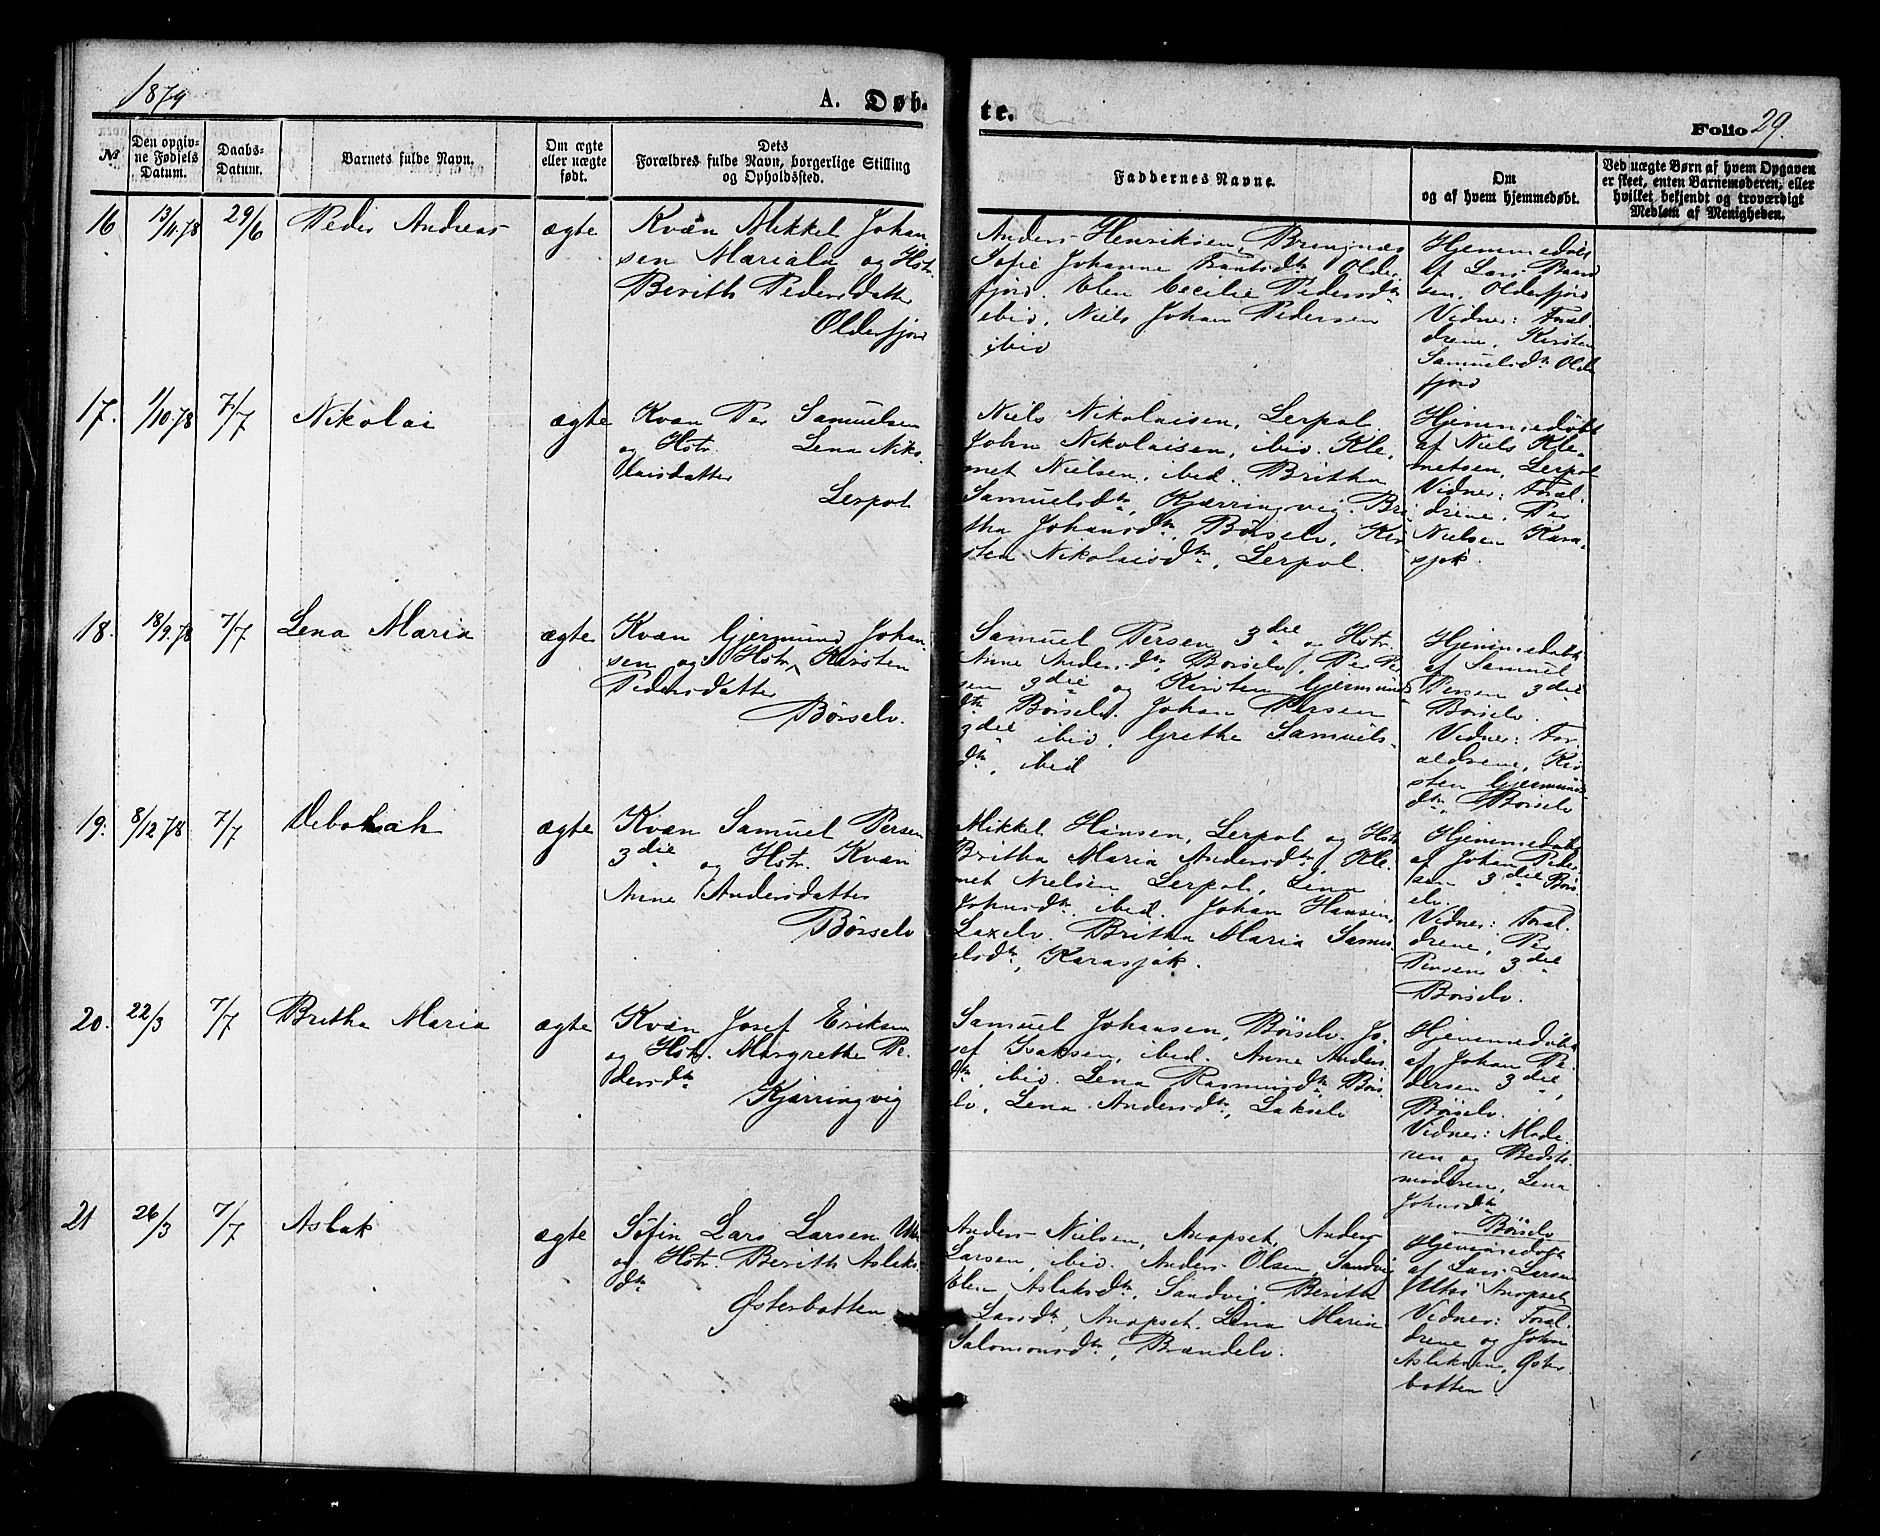 1879
A. Døb-
te.
Folio 29.
№
Den opgiv-
ne Fødsels
Datum.
Daabs-
Datum.
Barnets fulde Navn.
Om ægte
eller uægte
født.
Dets
Forældres fulde Navn, borgerlige Stilling
og Opholdssted.
Faddernes Navne.
Om
og af hvem hjemmedøbt.
Ved uægte Børn af hvem Opgaven
er skeet, enten Barnemoderen, eller
hvilket bekjendt og troværdigt
Medlem af Menigheden.
16
13/11.78
29/6
Peder Andreas
ægte
Kvæn Mikkel Johan
sen Mariala og Hstr.
Berith Pedersdatter
Olderfjord
Anders Henriksen,
Sofie Johanne Older-
fjord. Elen Cecilie Pedersdtr
ibid, Niels Johan Pedersen
ibid
Hjemmedøbt
af Lars
sen, Olderfjord
Vidner: Foræl-
drene, Kirsten
Samuelsdtr Older
fjord
17.
1/10.78
7/7
Nikolai
ægte
Kvæn Per Samuelsen
og Hstr. Lena Niko-
laisdatter
Lerpol
Niels Nikolaisen, Lerpol.
John Nikolaisen, ibid. Kle-
met Nielsen, ibid. Britha
Samuelsdtr, Kjærringvig. Bri-
tha Johansdtr, Børselv, Kir
sten Nikolaisdtr, Lerpol.
Hjemmedøbt
af Niels Kle-
metsen, Lerpol
Vidner: Foræl-
drene, Per
Nielsen Kara-
sjok.
18.
18/9.78
7/7
Lena Maria
ægte
Kvæn Gjermund Johan-
sen og Hstr. Kirsten
Pedersdatter
Børselv.
Samuel Persen 3die og Hstr.
Anne Andersdtr, Børselv, Per Per
sen 3die og Kirsten Gjermunds
dtr Børselv. Johan Persen
3die ibid, Grethe Samuels-
dtr, ibid
Hjemmedøbt
af Samuel
Persen 3die
Børselv.
Vidner: For-
ældrene, Kir
sten Gjermunds
dtr, Børselv
19.
8/12 78
7/7
Deborah
ægte
Kvæn Samuel Persen
3die og Hstr. Kvæn
Anne Andersdatter
Børselv
Mikkel Hansen, Lerpol og Hstr
Britha Maria Andersdtr, Kle-
met Nielsen Lerpol, Lena
Johnsdtr. ibid. Johan Hansen,
Laxelv. Britha Maria Samu-
elsdtr, Karasjok.
Hjemmedøbt
af Johan Peder
sen 3die Børs
elv.
Vidner: Foræl-
drene, Per
Persen 3die
Børselv.
20.
22/3
7/7
Britha Maria
ægte
Kvæn Josef Eriksen
og Hstr. Margrethe Pe-
dersdtr
Kjærringvig
Samuel Johansen, Børselv. Jo-
sef Isaksen, ibid. Anne Anders
dtr, ibid. Lena Rasmusdtr Børs-
elv, Lena Andersdtr, Lakselv
Hjemmedøbt
af Johan Pe-
dersen 3die,
Børselv.
Vidner: Mode-
ren og Bedste-
moderen, Lena
Johnsdtr
Børselv
21
26/3
7/7
Aslak
ægte
Søfin Lars Larsen
og Hstr. Berith Aslaks
dtr
Østerbotten
Anders Nielsen, Anopset, Anders
Larsen, ibid. Anders Olsen, Sandvi
Elen Aslaksdtr, Sandvig, Berith
Larsdtr, Anopset. Lena Maria
Salomonsdtr, Brændelv.
Hjemmedøbt
af Lars Larsen
Utsi Anopset
Vidner: Foræl-
drene og John
Aslaksen, Øster
botten.